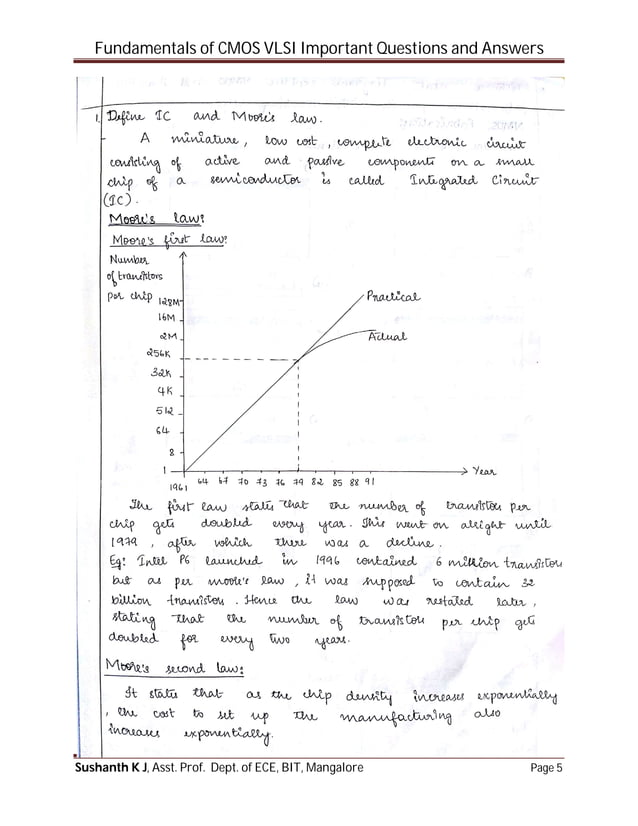 Fundamentals of CMOS VLSI Important Questions and Answers
1. Define IC and Moore's law.
A miniature, low cost, complete electronic circuit
consisting of active and passive components on a small
chip of a semiconductor is called Integrated Circuit
(IC).
Moore's law:
Moore's first law:
Number
of transistors
per chip
128M
16M
2M
256K
32K
4K
512
64
8
1
Practical
Actual
Year
1961 64 67 70 73 76 79 82 85 88 91
The first law states that the number of transistors per
chip gets doubled every year. This went on alright until
1979, after which there was a decline.
Eg: Intel P6 launched in 1996 contained 6 million transistors
but as per moore's law, it was supposed to contain 32
billion transistors. Hence the law was restated later,
stating that the number of transistors per chip gets
doubled for every two years.
Moore's second law:
It states that as the chip density increases exponentially
, the cost to set up the manufacturing also
increases exponentially.
Sushanth K J, Asst. Prof. Dept. of ECE, BIT, Mangalore
Page 5